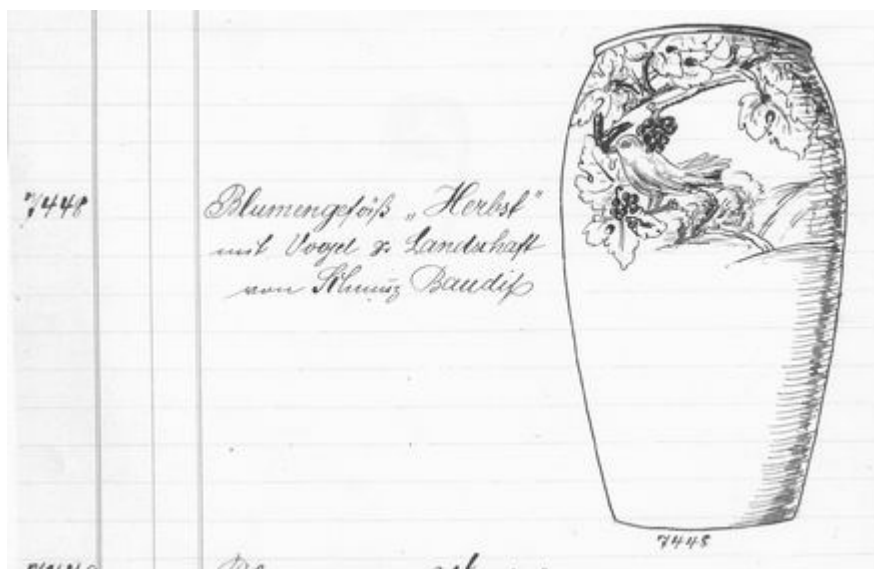 7448
Blumengefäß „Herbst"
mit Vogel & Landschaft
von Schmuz Baudiß
7448